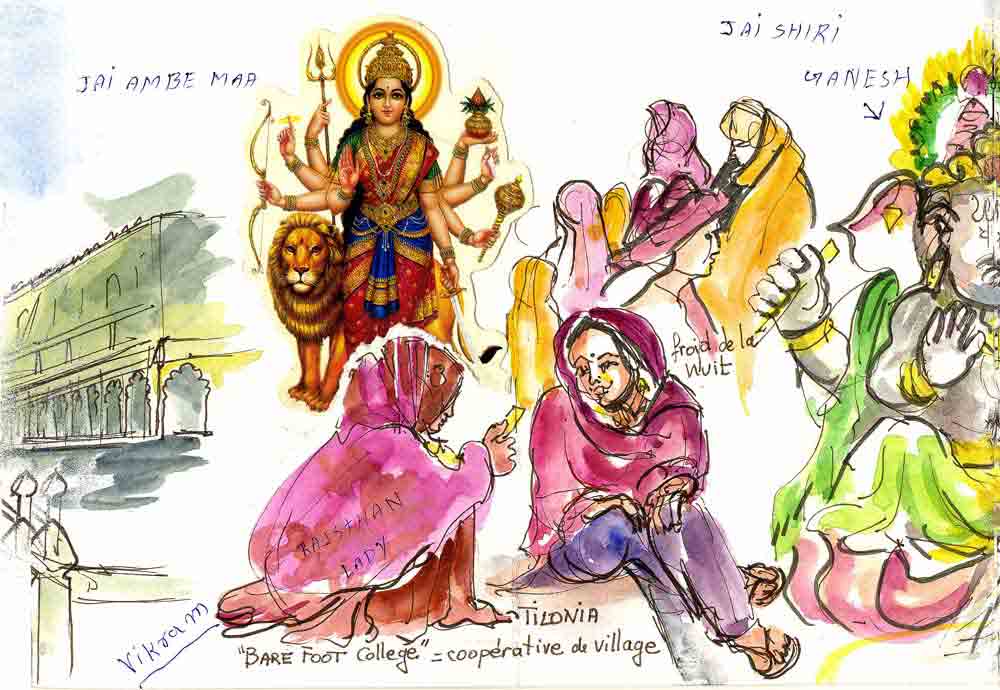 JAI AMBE MAA
JAI SHIRI
GANESH
froid de la
Nuit
RAJSTHAN
LADY
Vikram
TILONIA
"BARE FOOT College" = coopérative de village